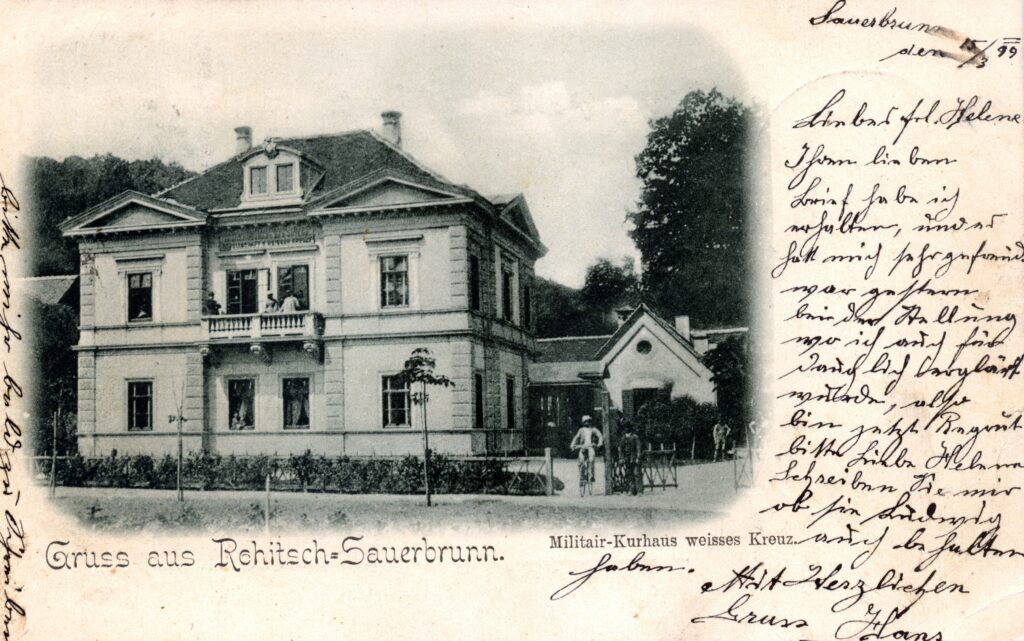 Sauerbrunn
den 15/3 99
Liebes frl. Helene
Ihren lieben
Brief habe ich
erhalten, und es
hatt mich sehr gefreud
war gestern
bei der Stellung
wo ich auch für
dauchlich berglärt
wurde, also
bin jetzt Regrut
bitte Liebe Helene
Schreiben Sie mir
ob sie Ludwig
auch behalten
haben.
Mit Herzlichen
Gruss Hans
Gruss aus Rohitsch-Sauerbrunn.
Militair-Kurhaus weisses Kreuz.